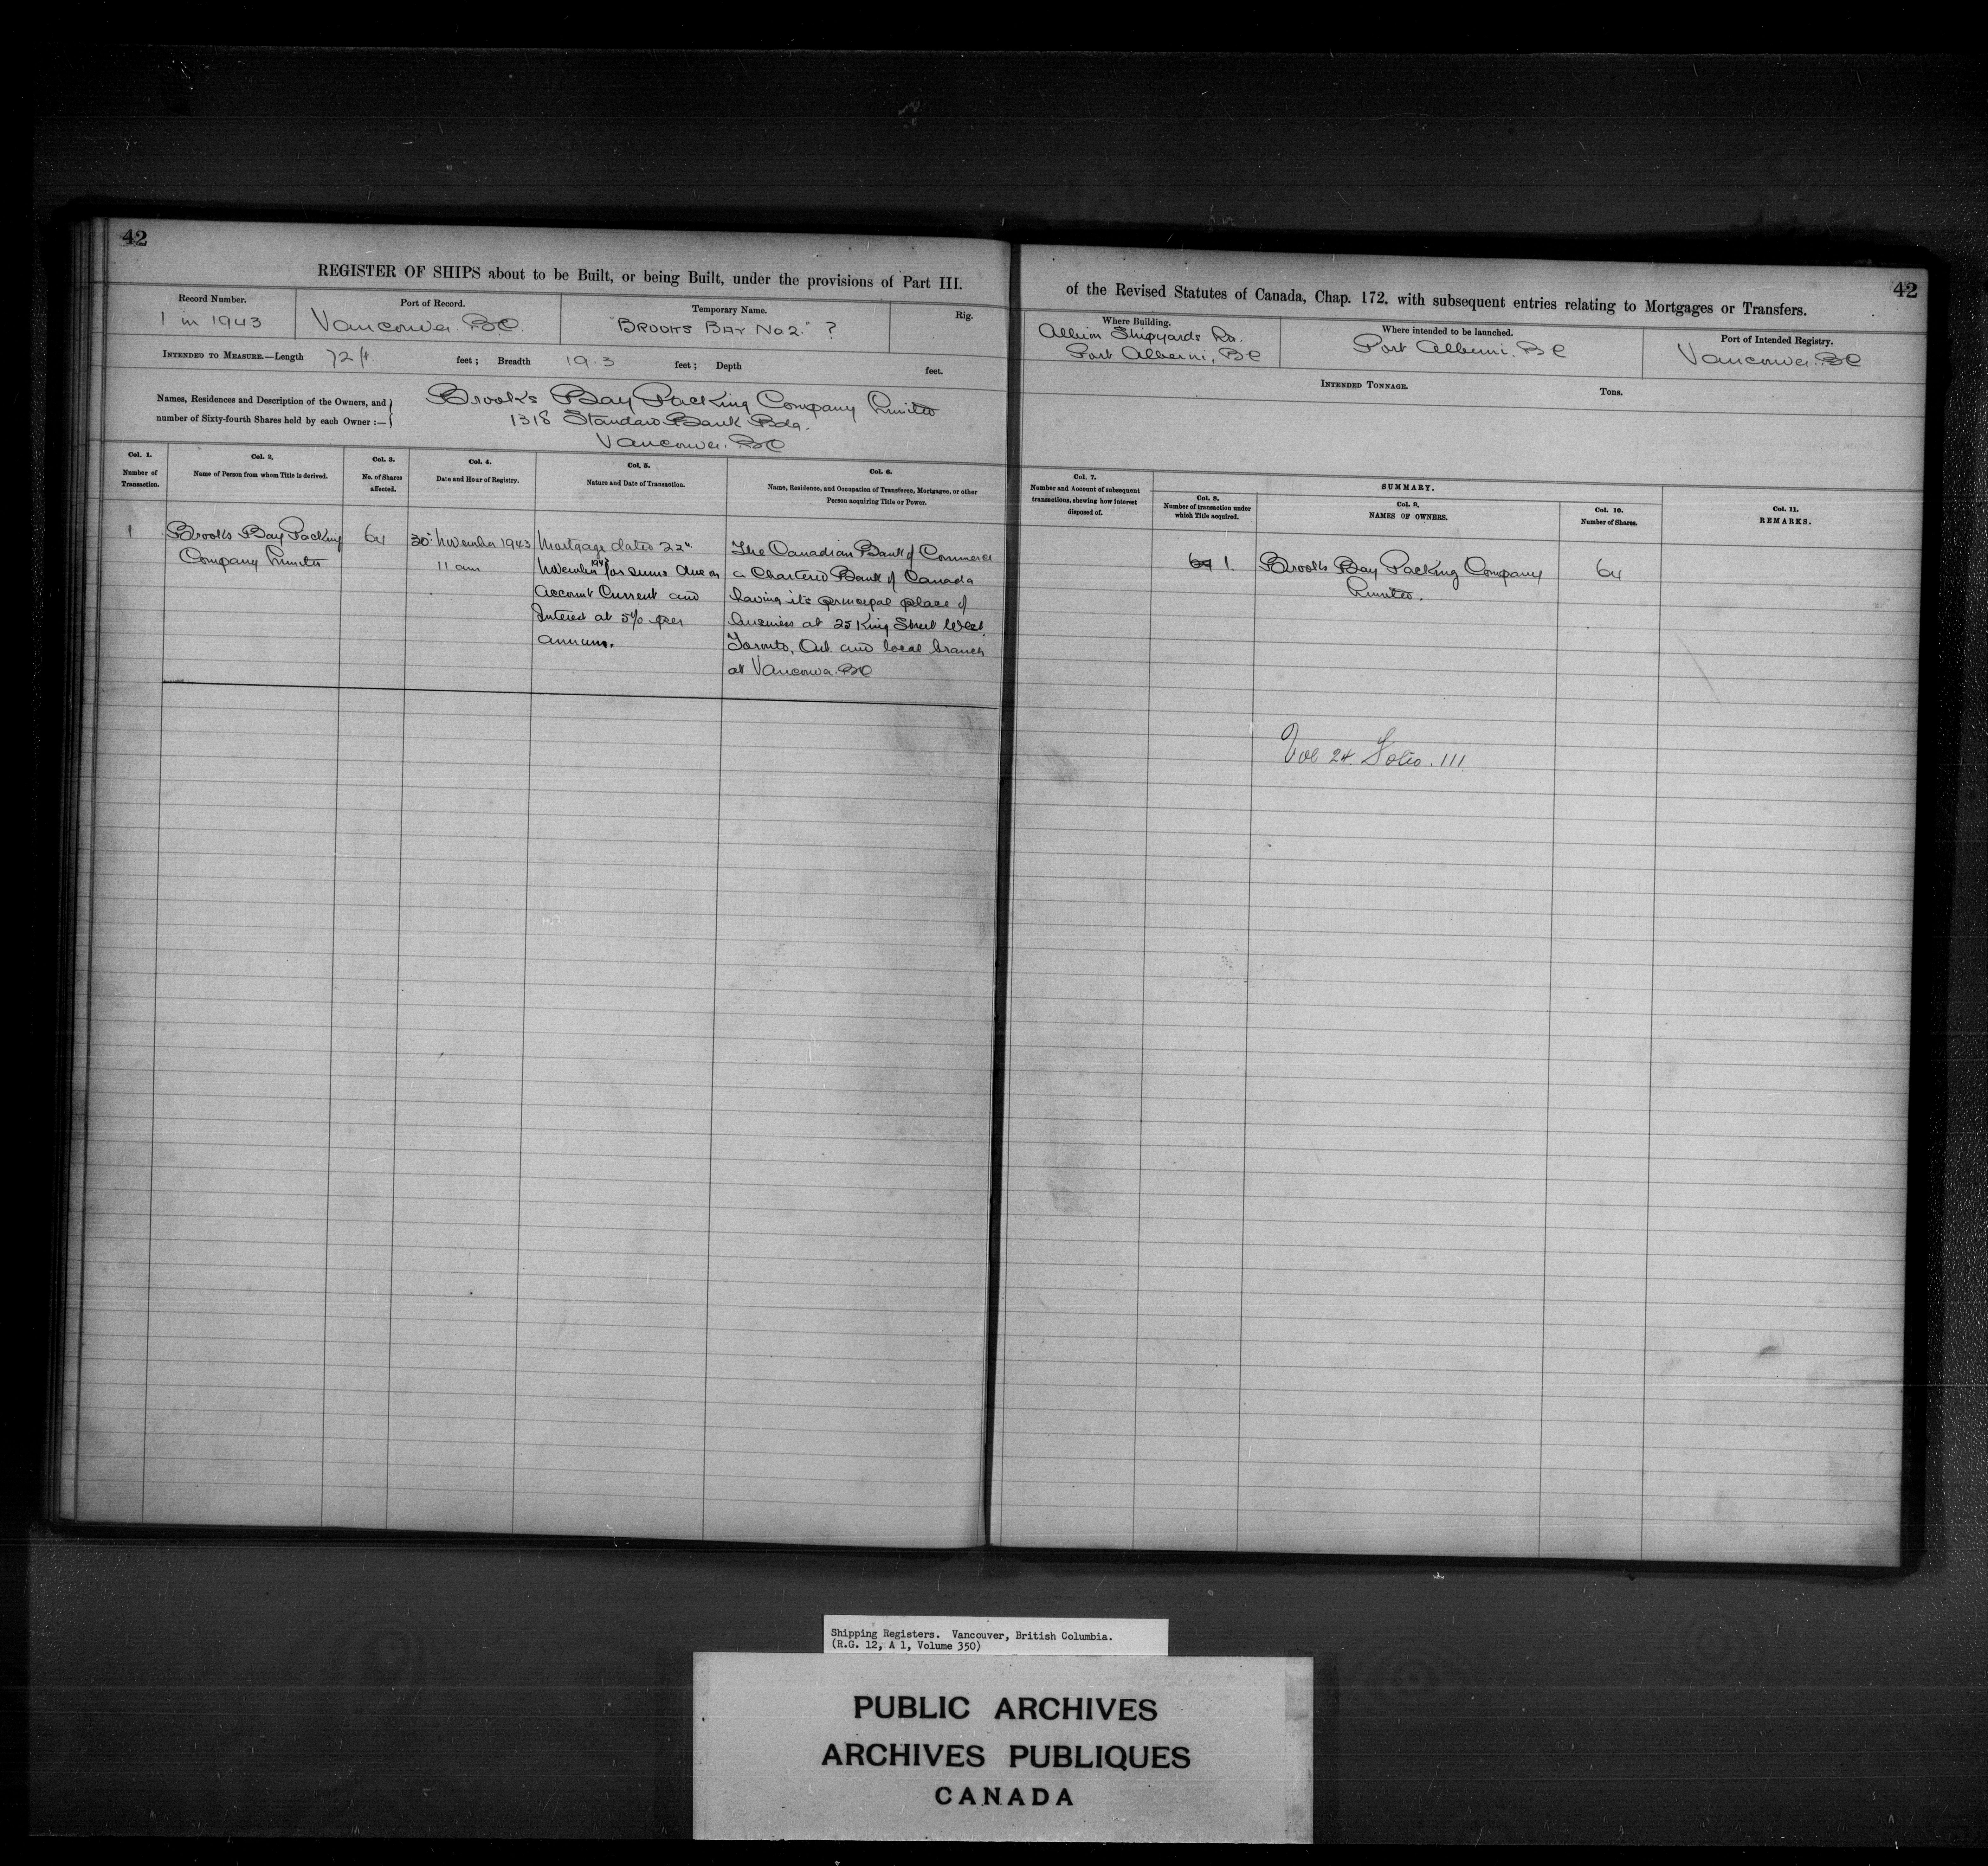 42
REGISTER OF SHIPS about to be Built, or being Built, under the provisions of Part III.
Record Number.
1 in 1943
Port of Record.
Vancouver BC
Temporary Name.
"BROOKS BAY No 2." ?
Rig.
INTENDED TO MEASURE.—Length 72 ft. feet; Breadth 19.3 feet; Depth feet.
Names, Residences and Description of the Owners, and
number of Sixty-fourth Shares held by each Owner :—
Brooks Bay Packing Company Limited
1318 Standard Bank Bdg.
Vancouver. BC
Col. 1.
Number of
Transaction.
Col. 2.
Name of Person from whom Title is derived.
Col. 3.
No. of Shares
affected.
Col. 4.
Date and Hour of Registry.
Col. 5.
Nature and Date of Transaction.
Col. 6.
Name, Residence, and Occupation of Transferee, Mortgagee, or other
Person acquiring Title or Power.
1
Brooks Bay Packing
Company Limited
64
30th November 1943
11 am
Mortgage dated 22nd
November 1943 for sums due on
Account Current and
Interest at 5% per
annum.
The Canadian Bank of Commerce
a Chartered Bank of Canada
having its principal place of
business at 25 King Street West
Toronto, Ont. and local branch
at Vancouver. BC
42
of the Revised Statutes of Canada, Chap. 172, with subsequent entries relating to Mortgages or Transfers.
Where Building.
Albion Shipyards
Port Alberni, BC
Where intended to be launched.
Port Alberni. BC
Port of Intended Registry.
Vancouver. BC
INTENDED TONNAGE. Tons.
Col. 7.
Number and Account of subsequent
transactions, shewing how interest
disposed of.
SUMMARY.
Col. 8.
Number of transaction under
which Title acquired.
Col. 9.
NAMES OF OWNERS.
Col. 10.
Number of Shares.
Col. 11.
REMARKS.
64 1.
Brooks Bay Packing Company
Limited.
64
Vol 24. Folio. 111
Shipping Registers. Vancouver, British Columbia.
(R.G. 12, A 1, Volume 350)
PUBLIC ARCHIVES
ARCHIVES PUBLIQUES
CANADA